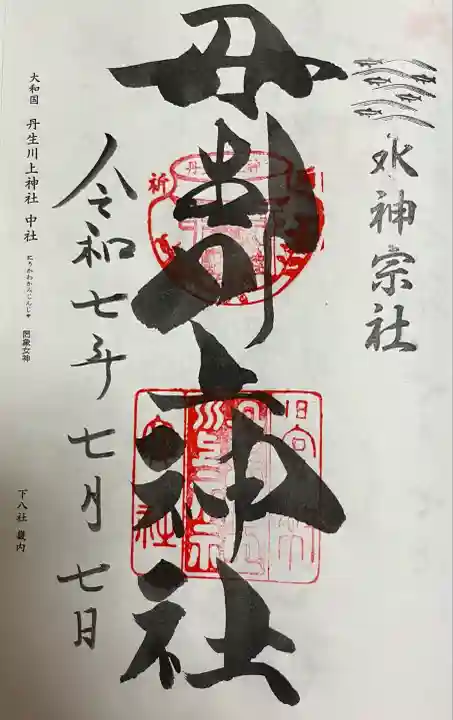 水神宗社
丹生川上神社
令和七年七月七日
大和国 丹生川上神社 中社 にうかわかみじんじゃ 罔象女神
下八社 畿内
祈